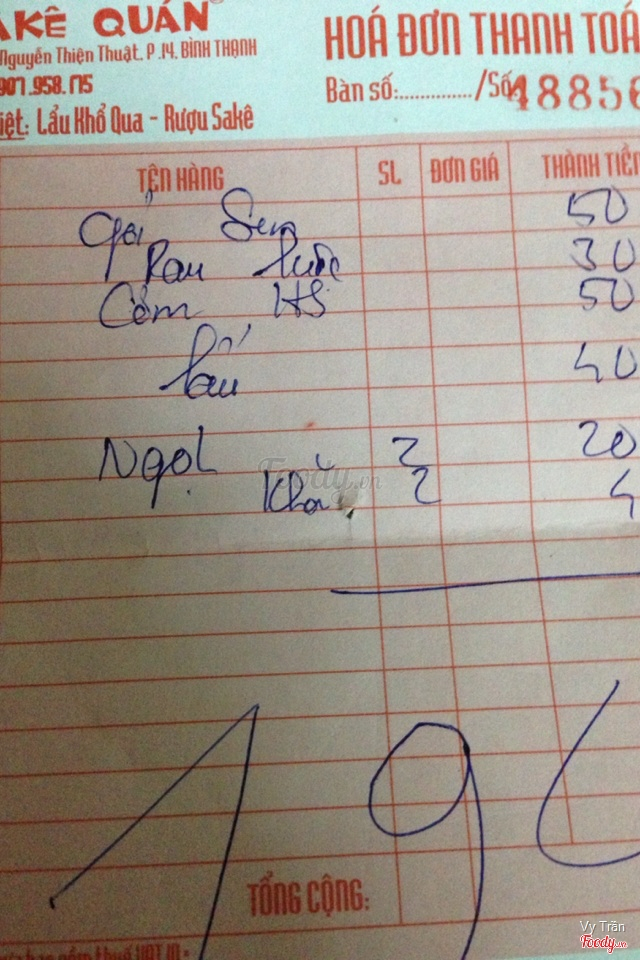 AKÊ QUÁN
Nguyễn Thiện Thuật. P .14. BÌNH THẠNH
907 .958 .175
iệt: Lẩu Khổ Qua - Rượu Sakê
HOÁ ĐƠN THANH TOÁ
Bàn số:............../Số 48856
TÊN HÀNG SL ĐƠN GIÁ THÀNH TIỀN
Gỏi Sen 50
Rau luộc 30
Cơm HS 50
lẩu 40
Ngọt 2 20
Khăn 2 4
196
TỔNG CỘNG:
Foody.vn
Vy Trần
Foody.vn